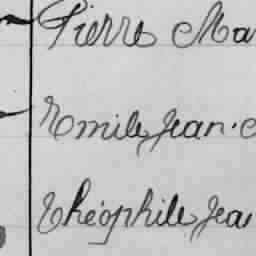 Pierre Ma
Emile Jean
Théophile Jea